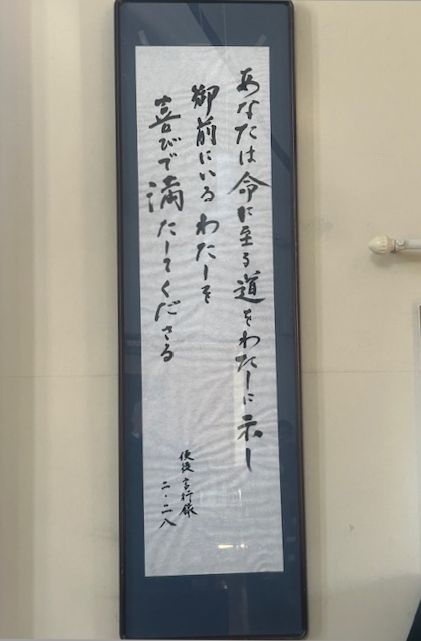 あなたは命に至る道をわたしに示し
御前にいるわたしを
喜びで満たしてくださる
使徒言行録
二・二八